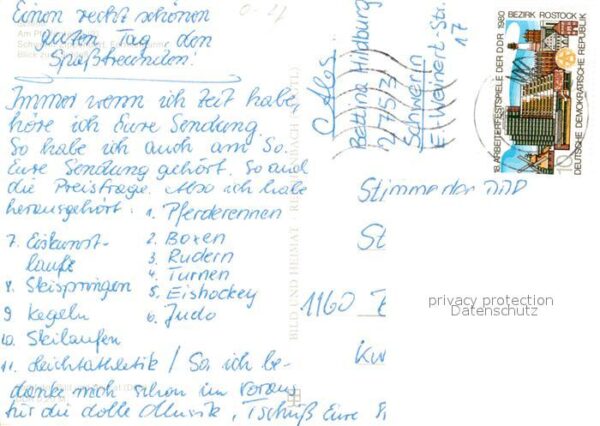 Einen recht schönen
guten Tag den
Spaßtreundon!
Immer wenn ich Zeit habe,
höre ich Eure Sendung.
So habe ich auch am So.
Eure Sendung gehört. So auch
die Preisfrage. Also ich habe
herausgehört:
1. Pferderennen
2. Boxen
3. Rudern
4. Turnen
5. Eishockey
6. Judo
7. Eiskunst-
laufe
8. Skispringen
9 Kegeln
10 Skilaufen
11. Leichtathletik / So, ich be-
danke mich schon im Voraus
für die dolle Musik, Tschüß Eure
BILD UND HEIMAT REICHENBACH
Abs.
Bettina Hildburg
275/31
Schwerin
E.-Weinert-Str.
17
18. ARBEITERFESTSPIELE DER DDR 1980 BEZIRK ROSTOCK
10
DEUTSCHE DEMOKRATISCHE REPUBLIK
Stimme der DDR
1160
privacy protection
Datenschutz